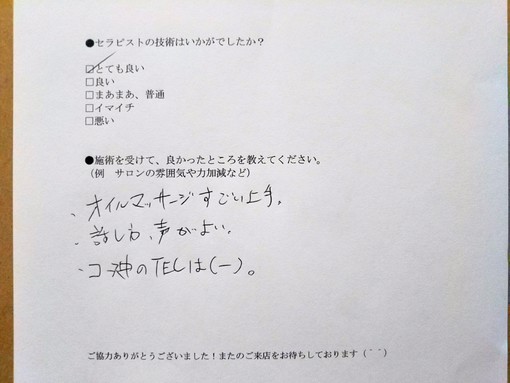 ●セラピストの技術はいかがでしたか？
☑とても良い
□良い
□まあまあ、普通
□イマイチ
□悪い
●施術を受けて、良かったところを教えてください。
（例　サロンの雰囲気や力加減など）
・オイルマッサージすごい上手。
・話し方、声がよい。
・のTELは(ー)。
ご協力ありがとうございました！またのご来店をお待ちしております（＾＾）